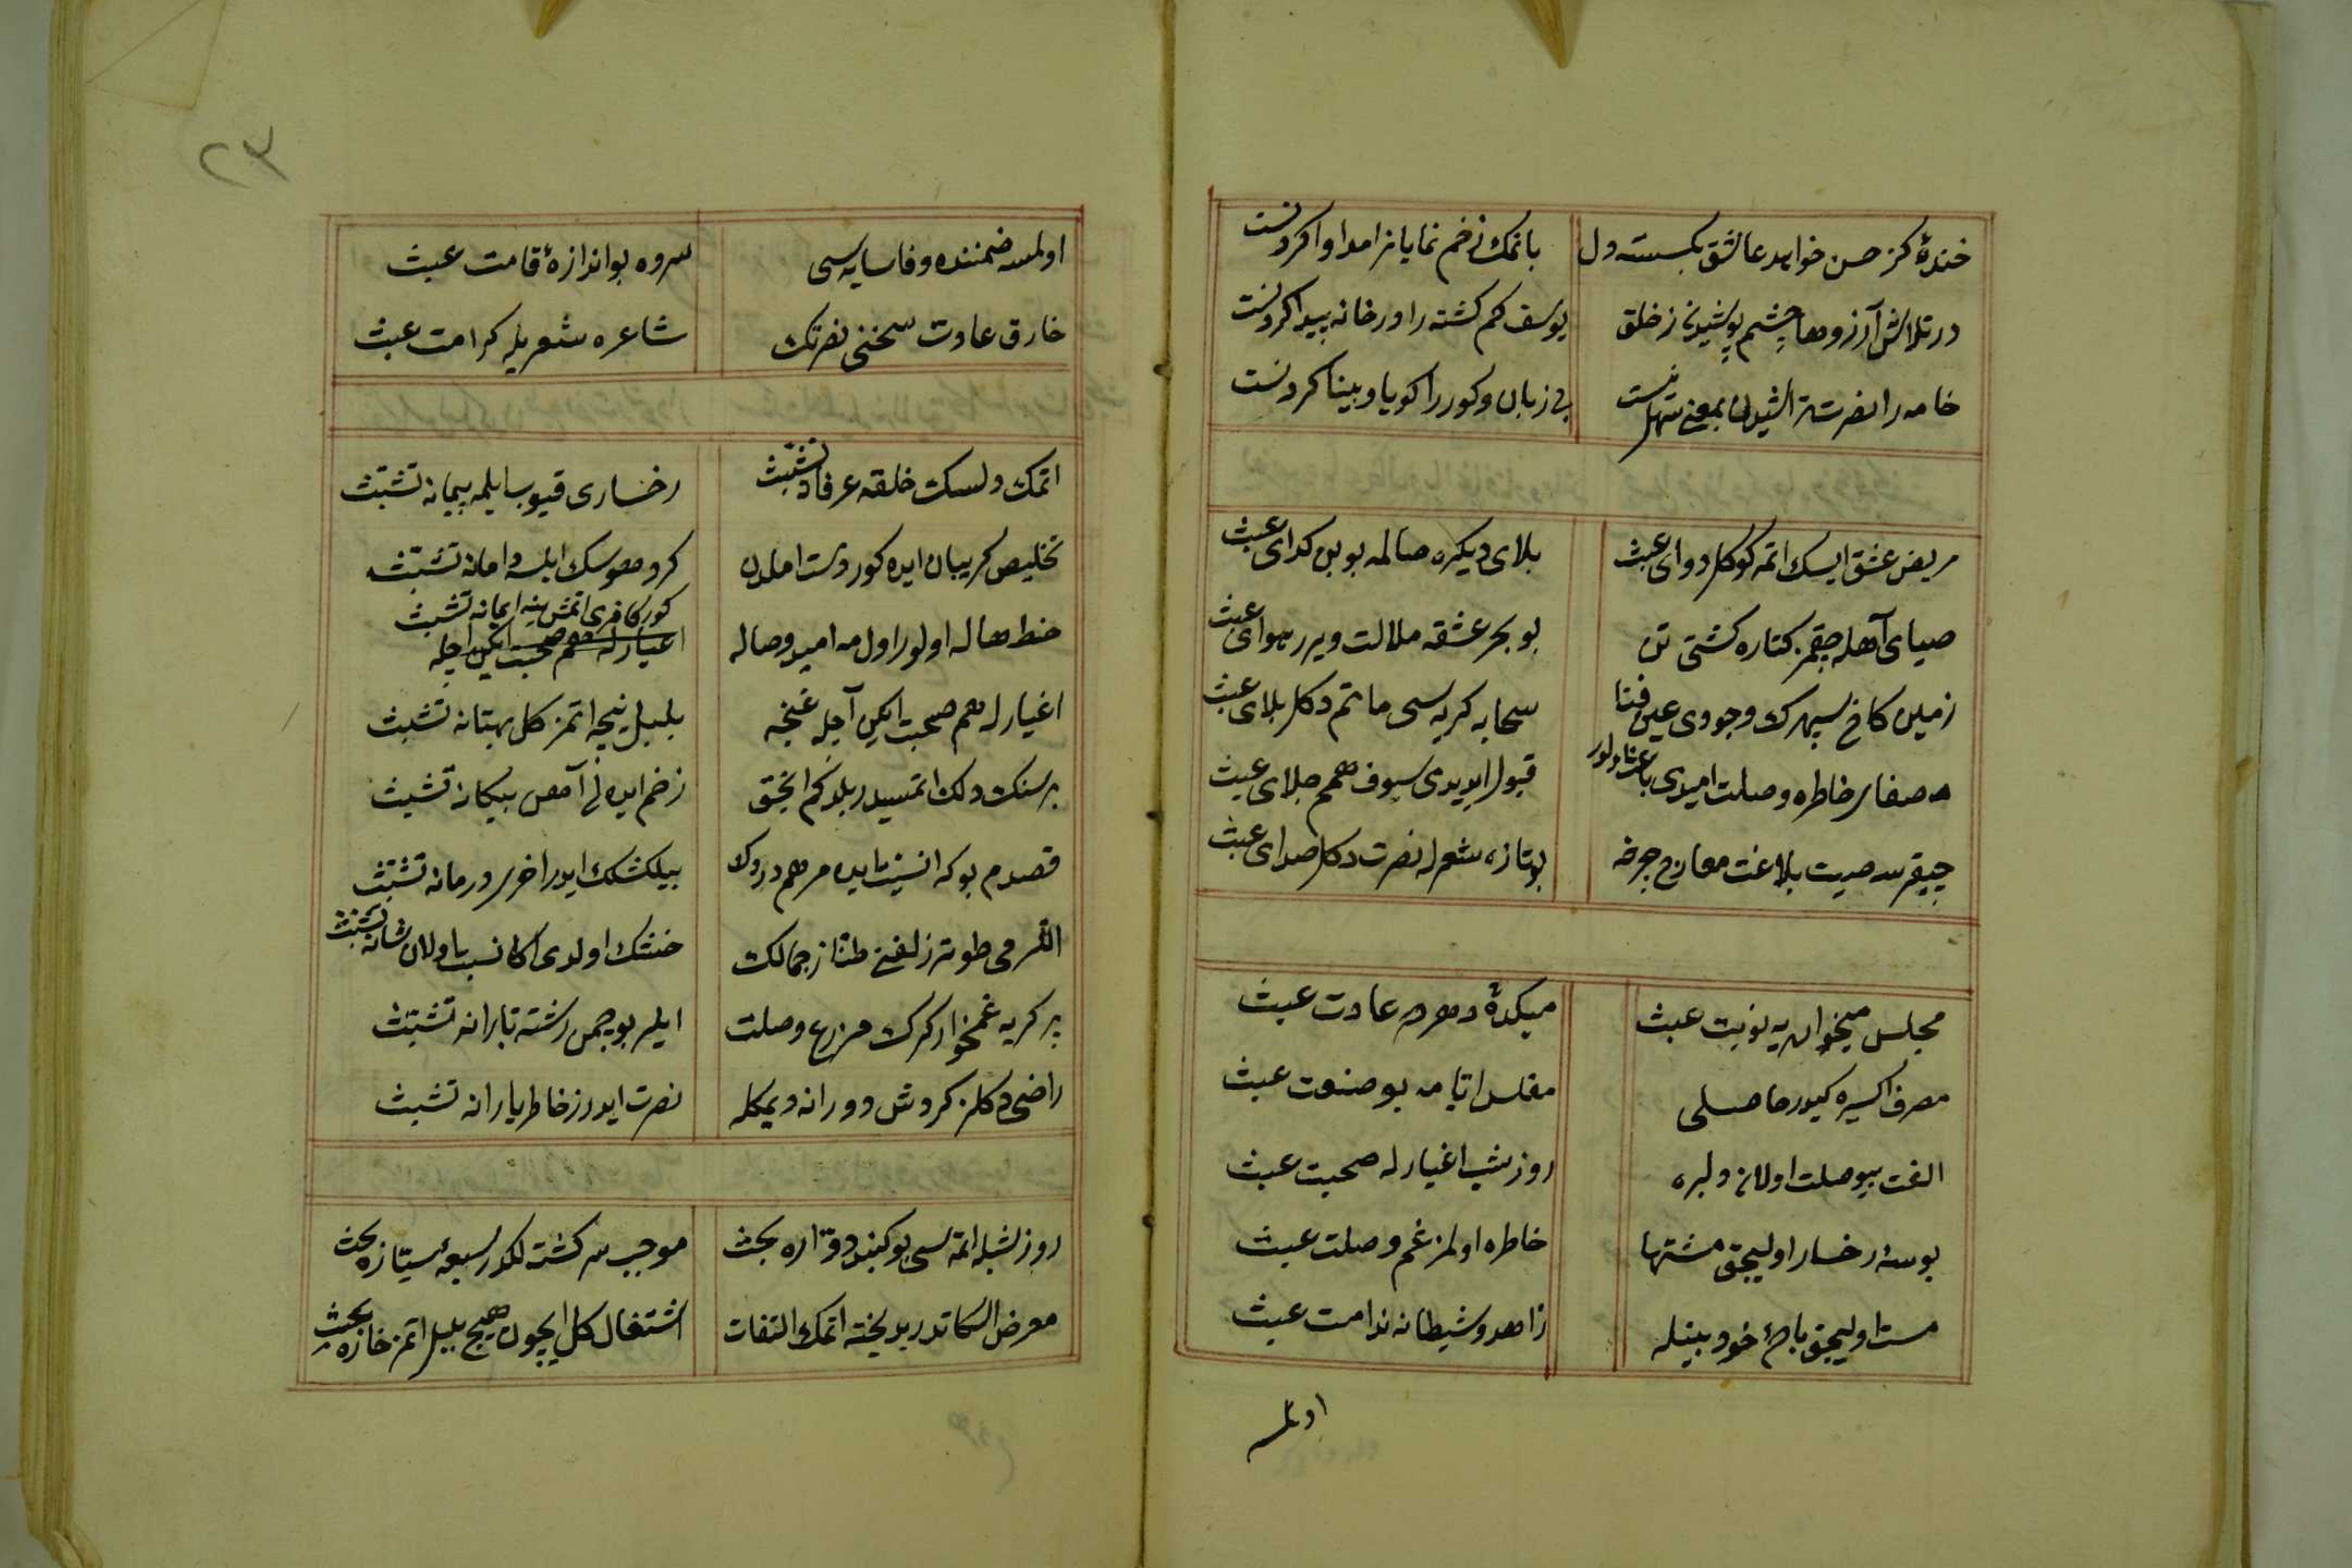 خندۀ کز حسن خواهد عاشق بکسسته دل با نمک زخم نمایانرا مداوا کردنست
در تلاش آرزوها چشم پوشیدن ز خلق یوسف کم کشته را در خانه پیدا کردنست
خامه را نصرت بمعنی سهل نیست بی زبان و کور را کویا و بینا کردنست
مریض عشق ایسک اتمه کوکل دوای عبث بلای دیکره صالمه بوبن کدای عبث
صبای آهله چقمز کناره کشتی تن بو بحر عشقه ملالت ویرر هوای عبث
زمین کاخ سپهرک وجودی عین فنا سحابه کریه سی ماتم دکل بلای عبث
صفای خاطره وصلت امیدی باعث اولور قبول ایدیدی سیوف همم جلای عبث
چیقرسه صیت بلاغت معارج چرخه بو تازه شعرله نصرت دکل صدای عبث
مجلس میخواریه نوبت عبث میکدۀ دهرده عادت عبث
مصرف اکسیره کیدر حاصلی مفلس ایامه بو صنعت عبث
الفت بیوصلت اولانز دلبره روز شب اغیارله صحبت عبث
بوسۀ رخسار اولیجق مشتها خاطره اولمز غم وصلت عبث
مست اولیجق بادۀ خودبینله زاهد و شیطانه ندامت عبث
اولمسه
٢٣
اولمسه ضمننده وفا سایه سی سروه بو اندازۀ قامت عبث
خارق عادت سخنی نصرتک شاعره شعریله کرامت عبث
اتمک دلسک خلقه عرفاد تشبث رخساری قیوب ایلمه پیمانه تشبث
تخلیص کریبان ایده کور دست املدن کرد هوسک ایلسه دامانه تشبث
خط هاله اولور اولمه امید وصاله کور کافری اتمش ینه ایمانه تشبث
اغیارله هم صحبت ایکن اچله
اغیارله هم صحبت ایکن آچله غنچه بلبل نیجه اتمز کل بهتانه تشبث
بر سنک دلک اتمسیدر بلدکم انجق زخم ایده نی آمص پیکانه تشبث
قصدم بو که انسیت ایده مرهم دردک بیلکشلک ایدر اخر درمانه تشبث
القرمی طوتر زلفنی طناز جمالک خنتک اولدی اکا نسبت اولان شانه تشبث
پر کریه غمخوار کرک مزرع وصلت ایلر بو چمن رشته بارانه تشبث
راضی دکلز کردش دورانه دیمکله نصرت ایدرز خاطر یارانه تشبث
روز شبله اتمسی بو کنبد دواره بحث موجب سرکشته لکدر سبعۀ سیاره بحث
معرض الکاتدر بدبخته اتمک التفات اشتغال کل ایچون هیچ بلبل اتمز خاره بحث